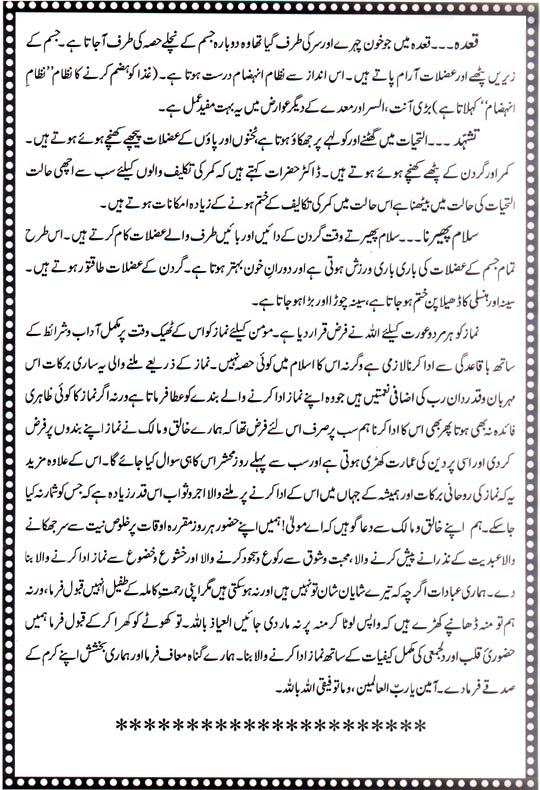 قعدہ ۔۔۔قعدہ میں جو خون چہرے اور سر کی طرف گیا تھا وہ دوبارہ جسم کے نچلے حصہ کی طرف آجاتا ہے۔ جسم کے
زیریں پٹھے اور عضلات آرام پاتے ہیں۔ اس انداز سے نظام انہضام درست ہوتا ہے۔ (غذا کو ہضم کرنے کا نظام ”نظامِ
انہضام“ کہلاتا ہے) بڑی آنت، السر اور معدے کے دیگر عوارض میں یہ بہت مفید عمل ہے۔
تشہد ۔۔۔التحیات میں گھٹنے اور کولہے پر جھکاؤ ہوتا ہے، ٹخنوں اور پاؤں کے عضلات پیچھے کھنچے ہوئے ہوتے ہیں۔
کمر اور گردن کے پٹھے کھنچے ہوئے ہوتے ہیں۔ ڈاکٹر حضرات کہتے ہیں کہ کمر کی تکالیف والوں کیلئے سب سے اچھی حالت
التحیات کی حالت میں بیٹھنا ہے اس حالت میں کمر کی تکالیف کے ختم ہونے کے زیادہ امکانات ہوتے ہیں۔
سلام پھیرنا ۔۔۔سلام پھیرتے وقت گردن کے دائیں اور بائیں طرف والے عضلات کام کرتے ہیں۔ اس طرح
تمام جسم کے عضلات کی باری باری ورزش ہوتی ہے اور دورانِ خون بہتر ہوتا ہے۔ گردن کے عضلات طاقتور ہوتے ہیں۔
سینہ اور ہنسلی کا ڈھیلا پن ختم ہو جاتا ہے، سینہ چوڑا اور بڑا ہو جاتا ہے۔
نماز کو ہر مرد و عورت کیلئے اللہ نے فرض قرار دیا ہے۔ مومن کیلئے نماز کو اس کے ٹھیک وقت پر مکمل آداب و شرائط کے
ساتھ باقاعدگی سے ادا کرنا لازمی ہے وگرنہ اس کا اسلام میں کوئی حصہ نہیں۔ نماز کے ذریعے ملنے والی یہ ساری برکات اس
مہربان و قدردان رب کی اضافی نعمتیں ہیں جو وہ اپنے نماز ادا کرنے والے بندے کو عطا فرماتا ہے ورنہ اگر نماز کا کوئی ظاہری
فائدہ نہ بھی ہوتا پھر بھی اس کا ادا کرنا ہم سب پر صرف اس لئے فرض تھا کہ ہمارے خالق و مالک نے نماز اپنے بندوں پر فرض
کر دی اور اسی پر دین کی عمارت کھڑی ہوتی ہے اور سب سے پہلے روز محشر اس کا ہی سوال کیا جائے گا۔ اس کے علاوہ مزید
یہ کہ نماز کی روحانی برکات اور ہمیشہ کے جہاں میں اس کے ادا کرنے پر ملنے والا اجر و ثواب اس قدر زیادہ ہے کہ جس کو شمار نہ کیا
جا سکے۔ ہم اپنے خالق و مالک سے دعا گو ہیں کہ اے مولیٰ! ہمیں اپنے حضور ہر روز مقررہ اوقات پر خلوصِ نیت سے سر جھکانے
والا عبدیت کے نذرانے پیش کرنے والا، محبت و شوق سے رکوع و سجود کرنے والا اور خشوع و خضوع سے نماز ادا کرنے والا بنا
دے۔ ہماری عبادات اگرچہ کہ تیرے شایانِ شان تو نہیں ہیں اور نہ ہوسکتی ہیں مگر اپنی رحمتِ کاملہ کے طفیل انہیں قبول فرما، ورنہ
ہم تو منہ ڈھانپے کھڑے ہیں کہ واپس لوٹا کر منہ پر نہ مار دی جائیں العیاذ باللہ۔ تو کھوٹے کو کھرا کر کے قبول فرما ہمیں
حضوریٔ قلب اور دلجمعی کی مکمل کیفیات کے ساتھ نماز ادا کرنے والا بنا۔ ہمارے گناہ معاف فرما اور ہماری بخشش اپنے کرم کے
صدقے فرما دے۔ آمین یا ربّ العالمین، وما توفیقی الا باللہ۔
**********************